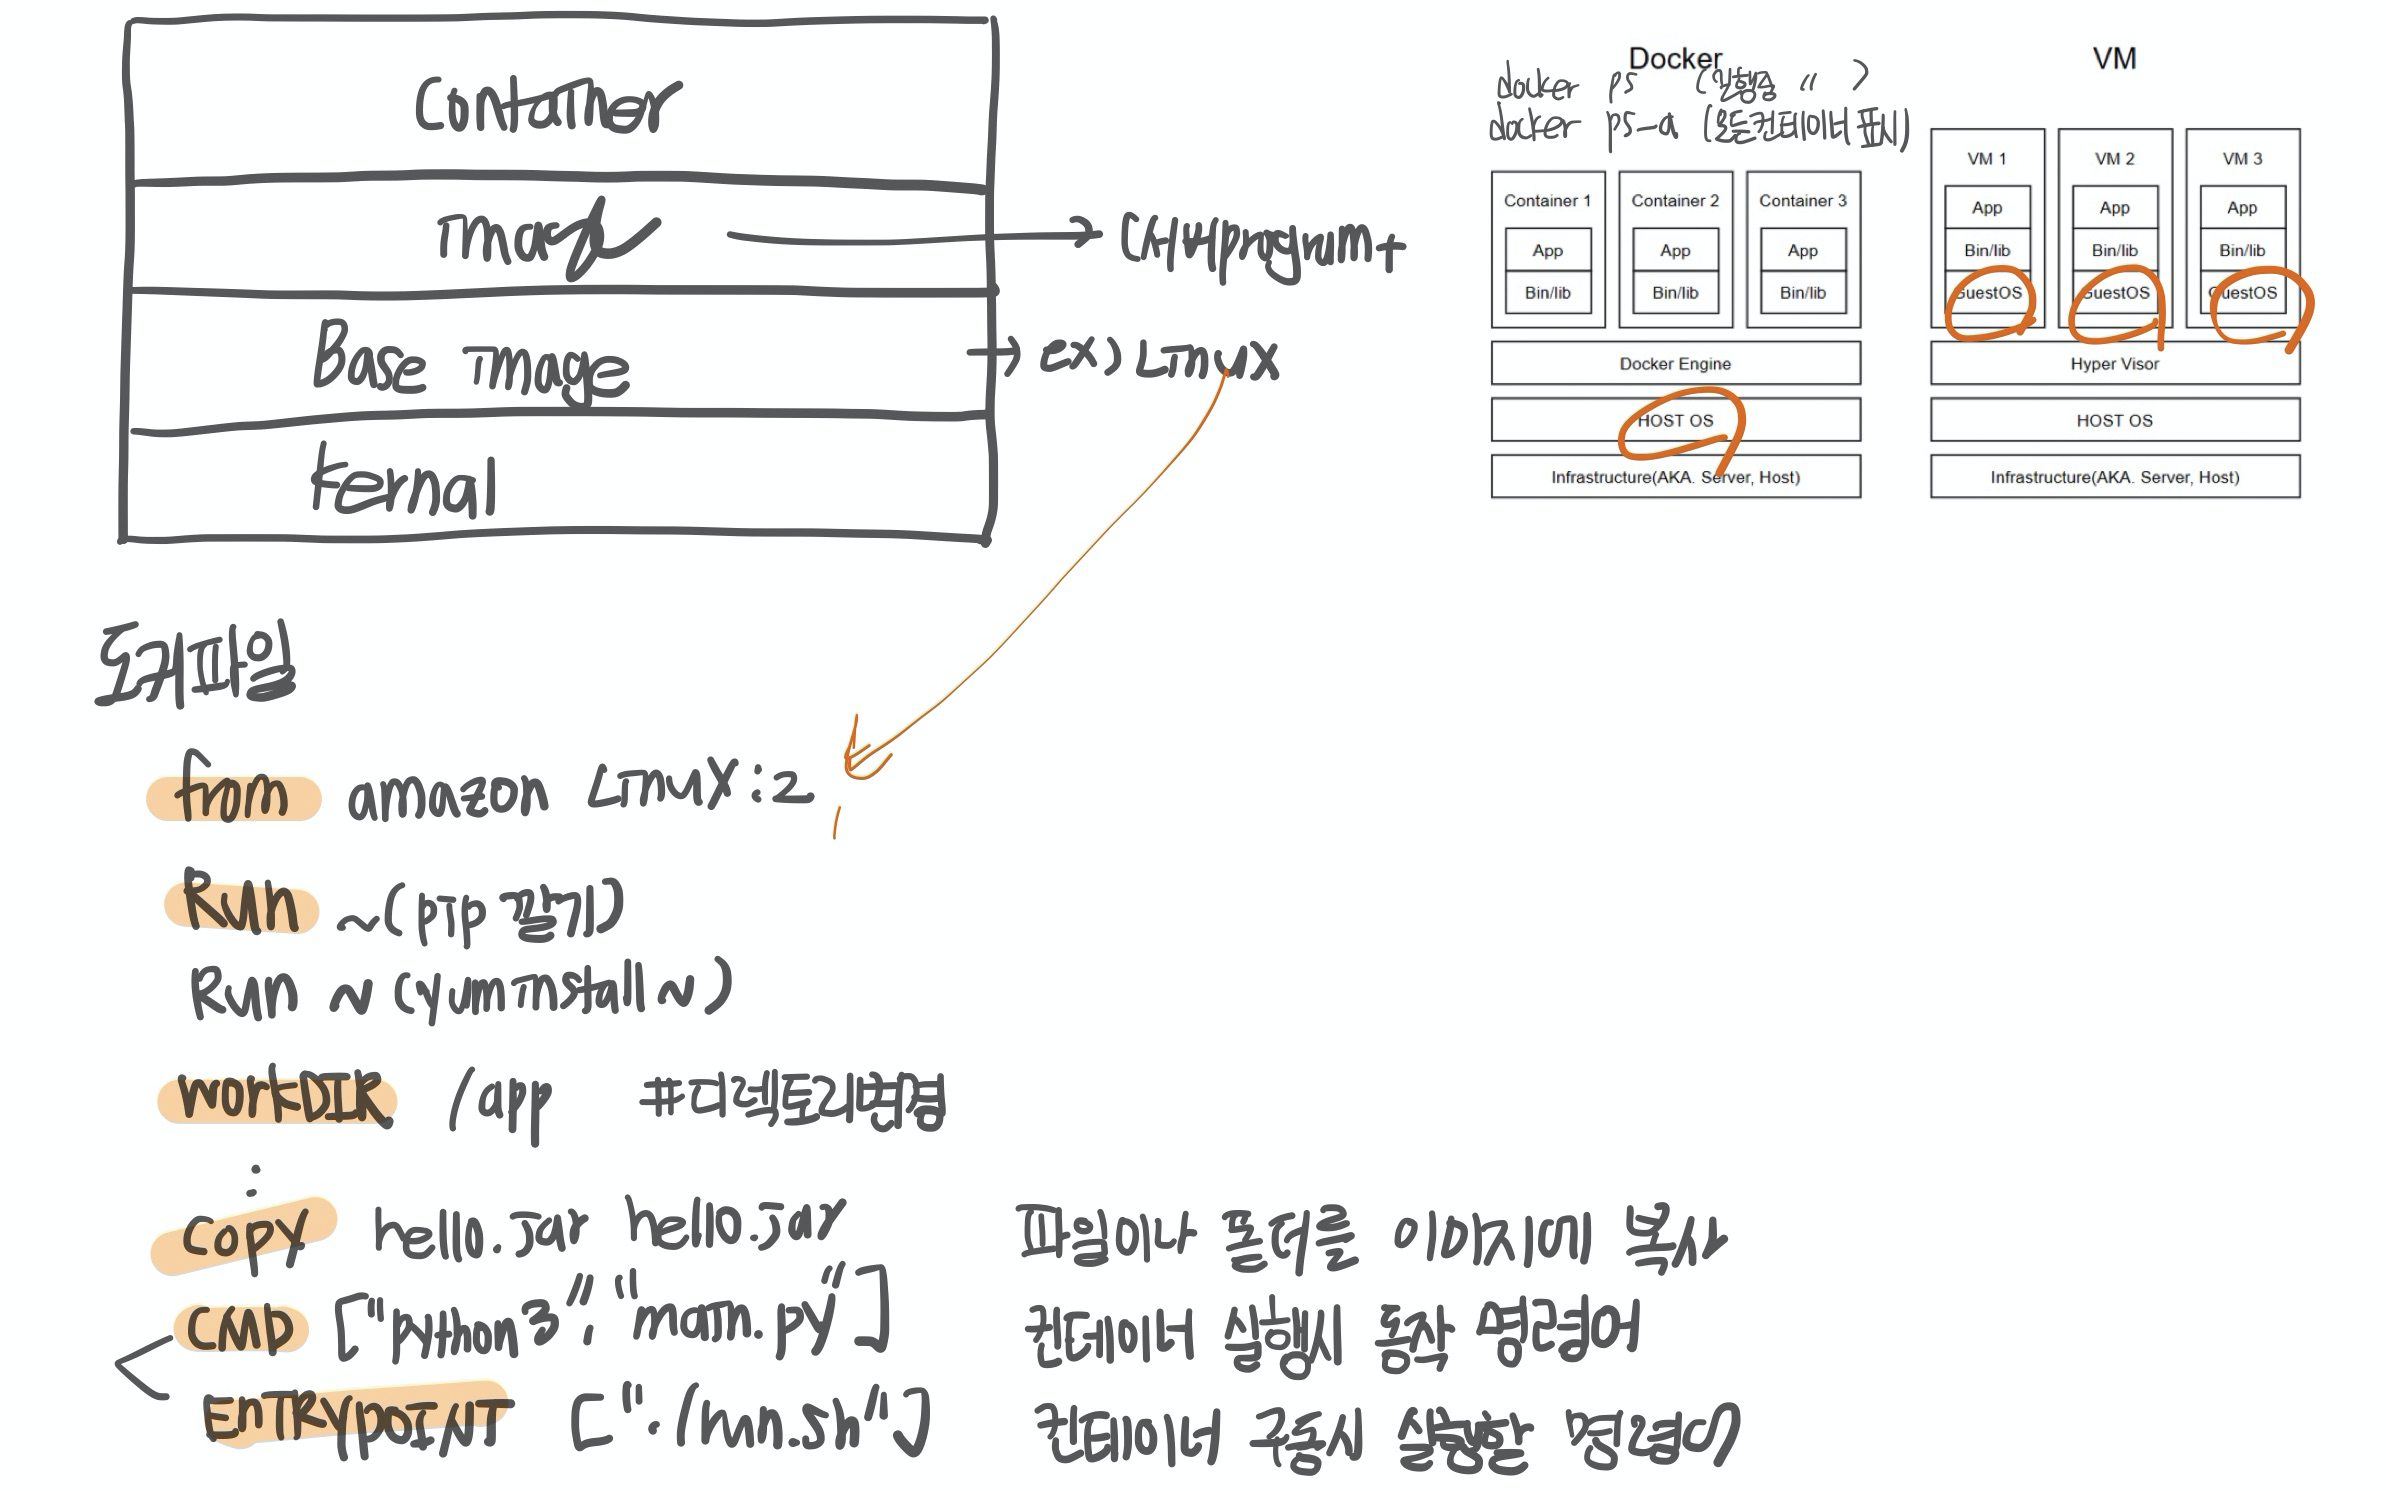 Container
Image → (서버program+
Base Image → ex) Linux
kernal
Docker
docker ps (실행중 〃 )
docker ps-a (모든컨테이너 표시)
Container 1 Container 2 Container 3
App App App
Bin/lib Bin/lib Bin/lib
Docker Engine
HOST OS
Infrastructure(AKA. Server, Host)
VM
VM 1 VM 2 VM 3
App App App
Bin/lib Bin/lib Bin/lib
GuestOS GuestOS GuestOS
Hyper Visor
HOST OS
Infrastructure(AKA. Server, Host)
도커파일
from amazon Linux:2
Run ~(pip 깔기)
Run ~ (yum install ~)
workDIR /app #디렉토리변경
:
Copy hello.jar hello.jar 파일이나 폴더를 이미지에 복사
CMD ["python3", "main.py"] 컨테이너 실행시 동작 명령어
EnTRypoINT ["./run.sh"] 컨테이너 구동시 실행할 명령어